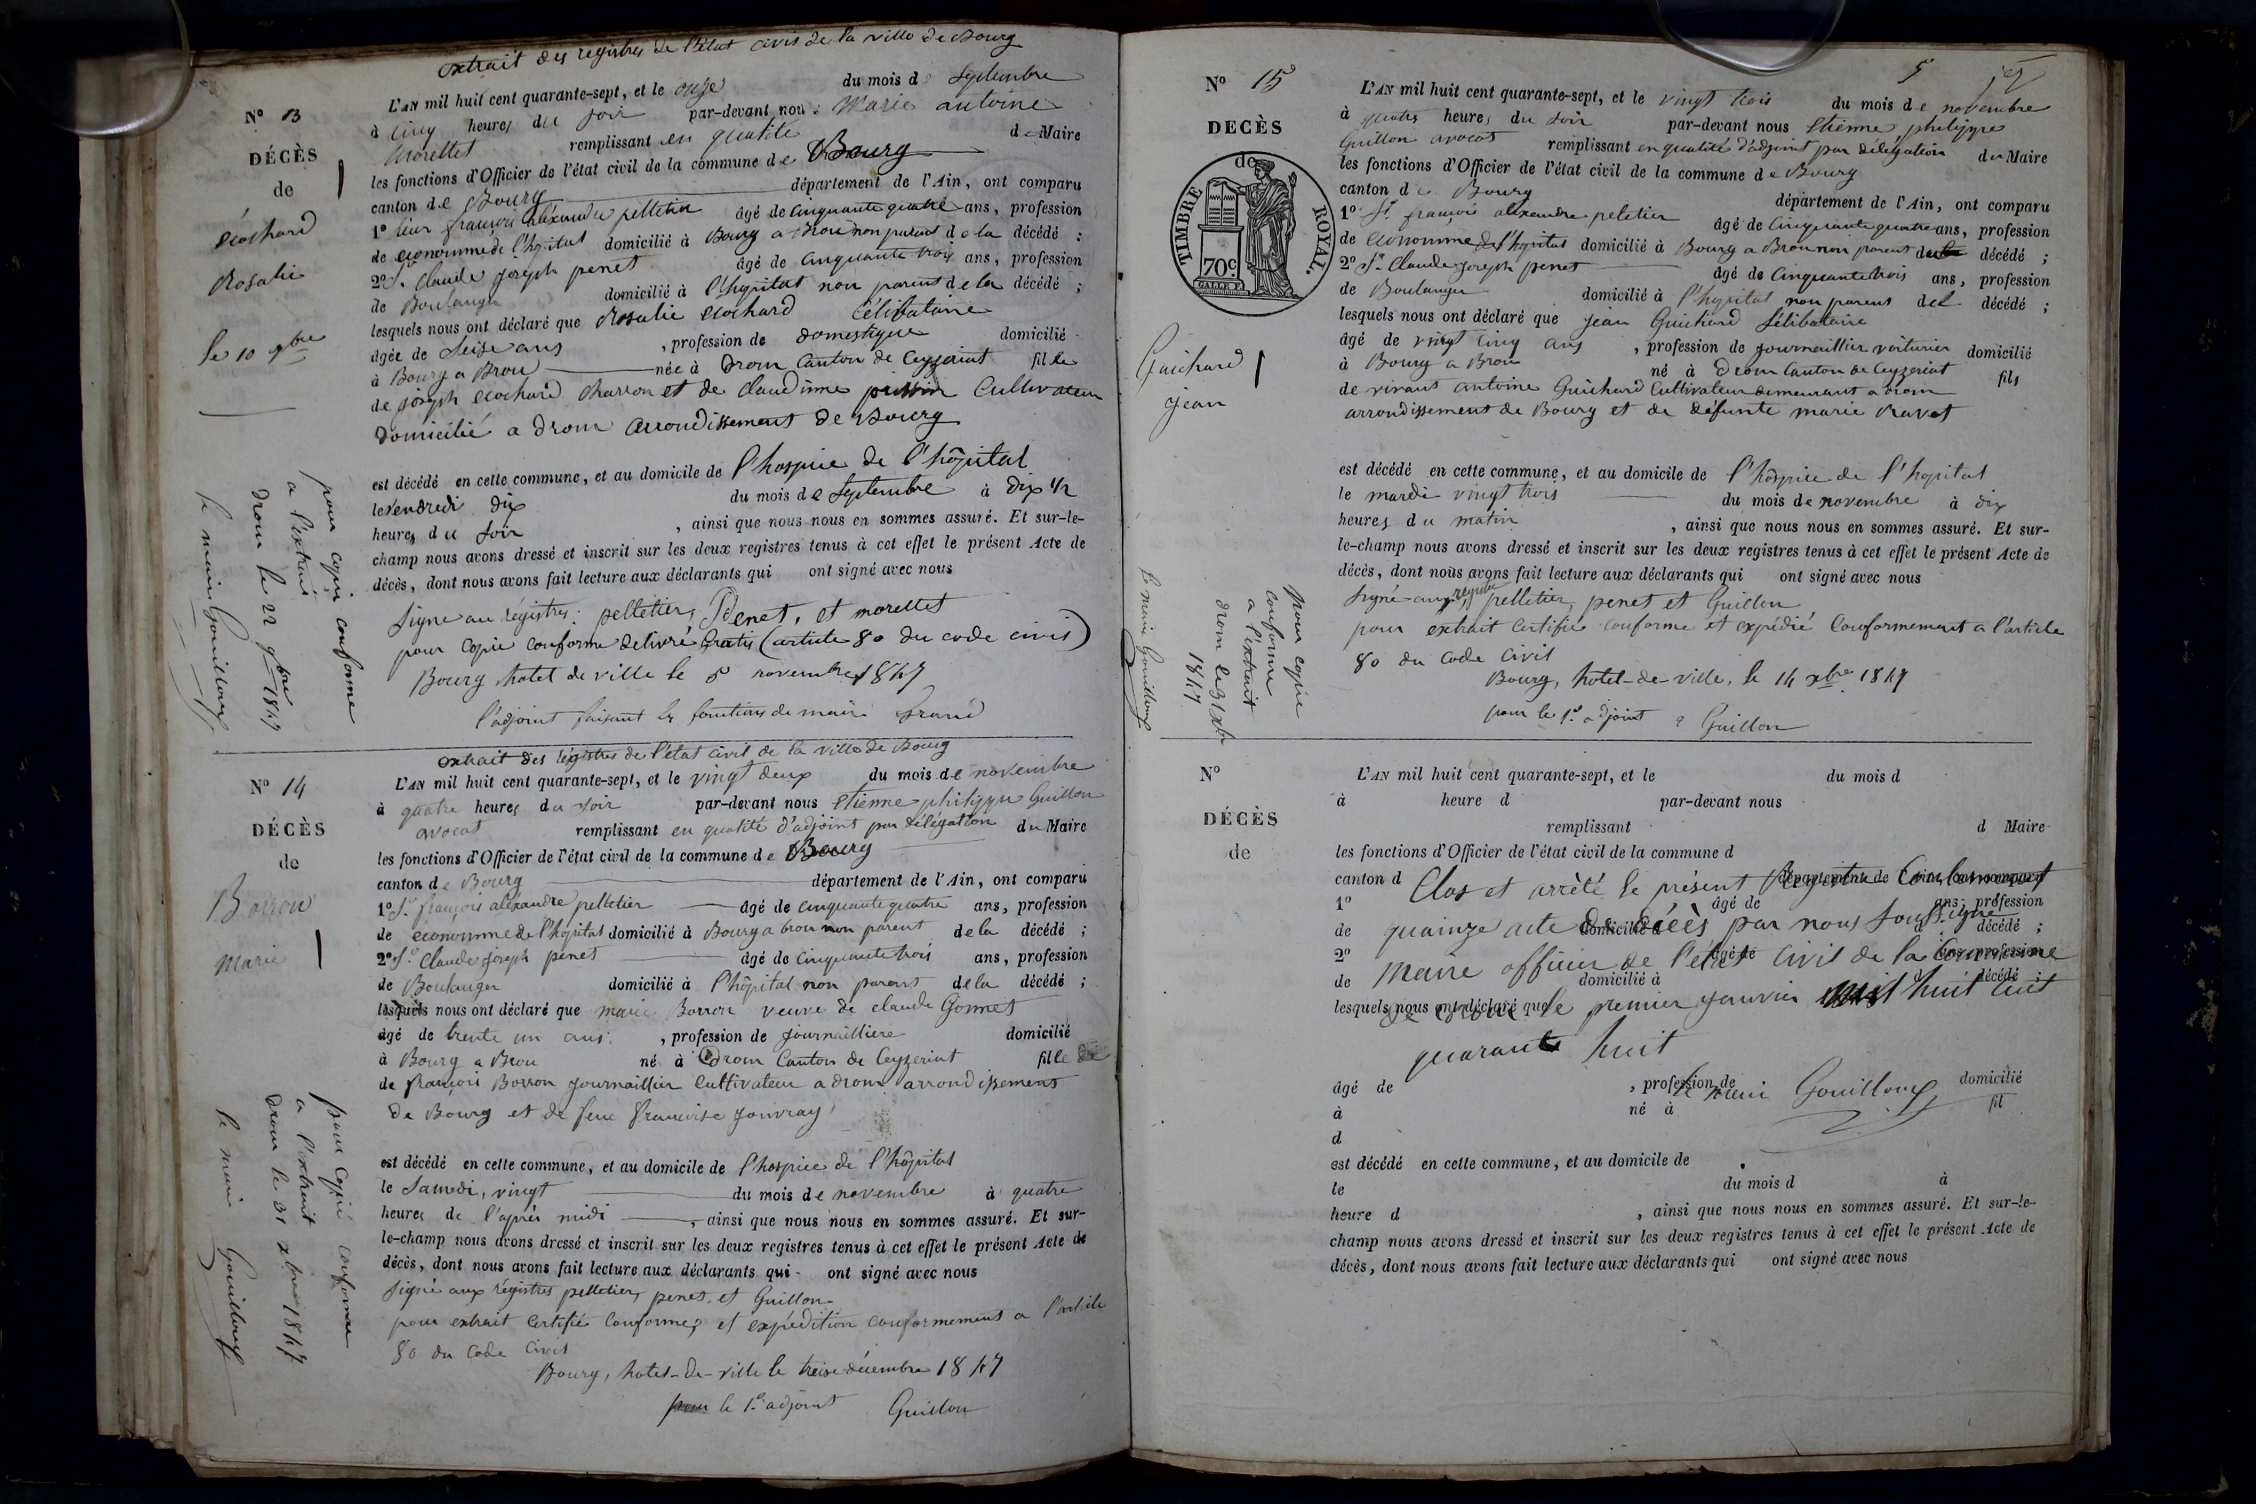 extrait des registres de l'état civil de la ville de Bourg
N° 13
DÉCÈS
de
écochard
Rosalie
le 10 9bre
L'AN mil huit cent quarante-sept, et le onze du mois d Septembre
à cinq heures du soir par-devant nou : Marie antoine
Morellet remplissant en qualité d Maire
les fonctions d'Officier de l'état civil de la commune de Bourg
canton de Bourg département de l'Ain, ont comparu
1° sieur françois alexandre pelletier âgé de cinquante quatre ans, profession
de economme de l'hôpital domicilié à Bourg a Brou non parent de la décédé ;
2° Sr claude joseph penet âgé de cinquante trois ans, profession
de Boulanger domicilié à l'hopital non parent de la décédé ;
lesquels nous ont déclaré que Rosalie écochard Célibataire
âgée de seise ans , profession de domestique domicilié
à Bourg a Brou née à Drom Canton de Ceyzeriat fille
de joseph écochard charron et de claudinne Cultivateur
domicilié a drom arrondissement de Bourg
est décédé en cette commune, et au domicile de l'hospice de l'hôpital
le Vendredi dix du mois de Septembre à dix 1/2
heures du soir , ainsi que nous nous en sommes assuré. Et sur-le-
champ nous avons dressé et inscrit sur les deux registres tenus à cet effet le présent Acte de
décès, dont nous avons fait lecture aux déclarants qui ont signé avec nous
Signé au régistres : pelletier, Penet, et morellet
pour copie conforme delivré Gratis (article 80 du code civil)
Bourg hotel de ville le 5 novembre 1847
l'adjoint faisant les fonctions de maire
pour copie conforme
a l'extrait
drom le 22 9bre 1847
le maire Gouilloux
extrait des régistres de l'état civil de la ville de Bourg
N° 14
DÉCÈS
de
Borron
marie
L'AN mil huit cent quarante-sept, et le vingt deux du mois de novembre
à quatre heures du soir par-devant nous Etienne philippe Guillon
avocat remplissant en qualité d'adjoint par délégation du Maire
les fonctions d'Officier de l'état civil de la commune de Bourg
canton de Bourg département de l'Ain, ont comparu
1° Sr françois alexandre pelletier âgé de cinquante quatre ans, profession
de economme de l'hôpital domicilié à Bourg a brou non parent de la décédé ;
2° Sr Claude joseph penet âgé de cinquante trois ans, profession
de Boulanger domicilié à l'hôpital non parent de la décédé ;
lesquels nous ont déclaré que marie Borron veuve de claude Gonnet
âgé de trente un ans , profession de journaillière domicilié
à Bourg a Brou né à Drom Canton de Ceyzeriat fille
de françois Borron journaillier Cultivateur a drom arrondissement
de Bourg et de feue francoise jouvray
est décédé en cette commune, et au domicile de l'hospice de l'hôpital
le Samedi, vingt du mois de novembre à quatre
heures de l'après midi , ainsi que nous nous en sommes assuré. Et sur-
le-champ nous avons dressé et inscrit sur les deux registres tenus à cet effet le présent Acte de
décès, dont nous avons fait lecture aux déclarants qui ont signé avec nous
Signé aux régistres pelletier, penet, et Guillon
pour extrait certifié conforme, et expédition conformement a l'article
80 du code Civil
Bourg, hotel-de-ville le treise décembre 1847
pour le 1er adjoint Guillon
pour copie conforme
a l'extrait
drom le 31 xbre 1847
le maire Gouilloux
5
N° 15
DECÈS
de
TIMBRE ROYAL.
70c
Guichard
jean
L'AN mil huit cent quarante-sept, et le vingt trois du mois de novembre
à quatre heures du soir par-devant nous Etienne philippe
Guillon avocat remplissant en qualité d'adjoint par délégation du Maire
les fonctions d'Officier de l'état civil de la commune de Bourg
canton de Bourg département de l'Ain, ont comparu
1° Sr françois alexandre peletier âgé de cinquante quatre ans, profession
de economme de l'hopital domicilié à Bourg a Brou non parent décédé ;
2° Sr Claude joseph penet âgé de cinquante trois ans, profession
de Boulanger domicilié à l'hopital non parent del décédé ;
lesquels nous ont déclaré que jean Guichard Célibataire
âgé de vingt cinq ans , profession de journaillier voiturier domicilié
à Bourg a Brou né à Drom Canton de Ceyzeriat fils
de vivant antoine Guichard Cultivateur demeurant a drom
arrondissement de Bourg et de défunte marie Ravat
est décédé en cette commune, et au domicile de l'hospice de l'hopital
le mardi vingt trois du mois de novembre à dix
heures du matin , ainsi que nous nous en sommes assuré. Et sur-
le-champ nous avons dressé et inscrit sur les deux registres tenus à cet effet le présent Acte de
décès, dont nous avons fait lecture aux déclarants qui ont signé avec nous
Signé aux registre pelletier, penet et Guillon
pour extrait certifié conforme et expédié Conformement a l'article
80 du code civil
Bourg, hotel-de-ville, le 14 xbre 1847
pour le 1er adjoint Guillon
pour copie
conforme
a l'extrait
drom le 31 xbre
1847
le maire Gouilloux
N°
DÉCÈS
de
L'AN mil huit cent quarante-sept, et le du mois d
à heure d par-devant nous
remplissant d Maire
les fonctions d'Officier de l'état civil de la commune d
canton d département de l'Ain, ont comparu
Clos et arrêté le présent Registre Contenant
1° âgé de ans, profession
de domicilié à d décédé ;
quainze acte de décès par nous soussigné
2° âgé de ans, profession
maire officier de l'état Civil de la Commune
de domicilié à décédé ;
lesquels nous ont déclaré que
de drom le premier janvier mil huit cent
quarante huit
le maire Gouilloux
âgé de , profession de domicilié
à né à fil
d
est décédé en cette commune, et au domicile de
le du mois d à
heure d , ainsi que nous nous en sommes assuré. Et sur-le-
champ nous avons dressé et inscrit sur les deux registres tenus à cet effet le présent Acte de
décès, dont nous avons fait lecture aux déclarants qui ont signé avec nous